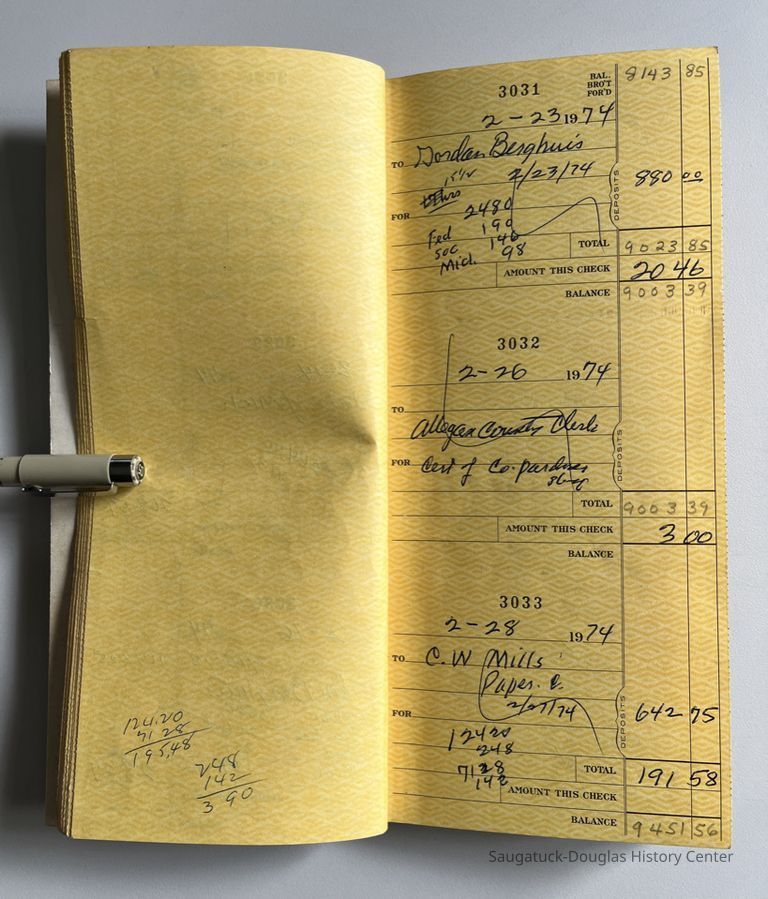 124.20
71 28
195,48
248
142
3 90
3031
BAL. BRO'T FOR'D
8143 85
2 - 23 1974
TO Gordon Berghuis
2/23/74
DEPOSITS 880 00
FOR
2480
Fed 190
soc 146
Mich. 98
TOTAL 9023 85
AMOUNT THIS CHECK 20 46
BALANCE 9003 39
3032
2-26 1974
TO
Allegan County Clerk
FOR Cert of Co-pardners
DEPOSITS
TOTAL 9003 39
AMOUNT THIS CHECK 3 00
BALANCE
3033
2-28 1974
TO C.W Mills
Paper. C.
2/27/74
DEPOSITS 642 75
FOR
124 20
248
71 28
142
TOTAL 191 58
AMOUNT THIS CHECK
BALANCE 9451 56
Saugatuck-Douglas History Center